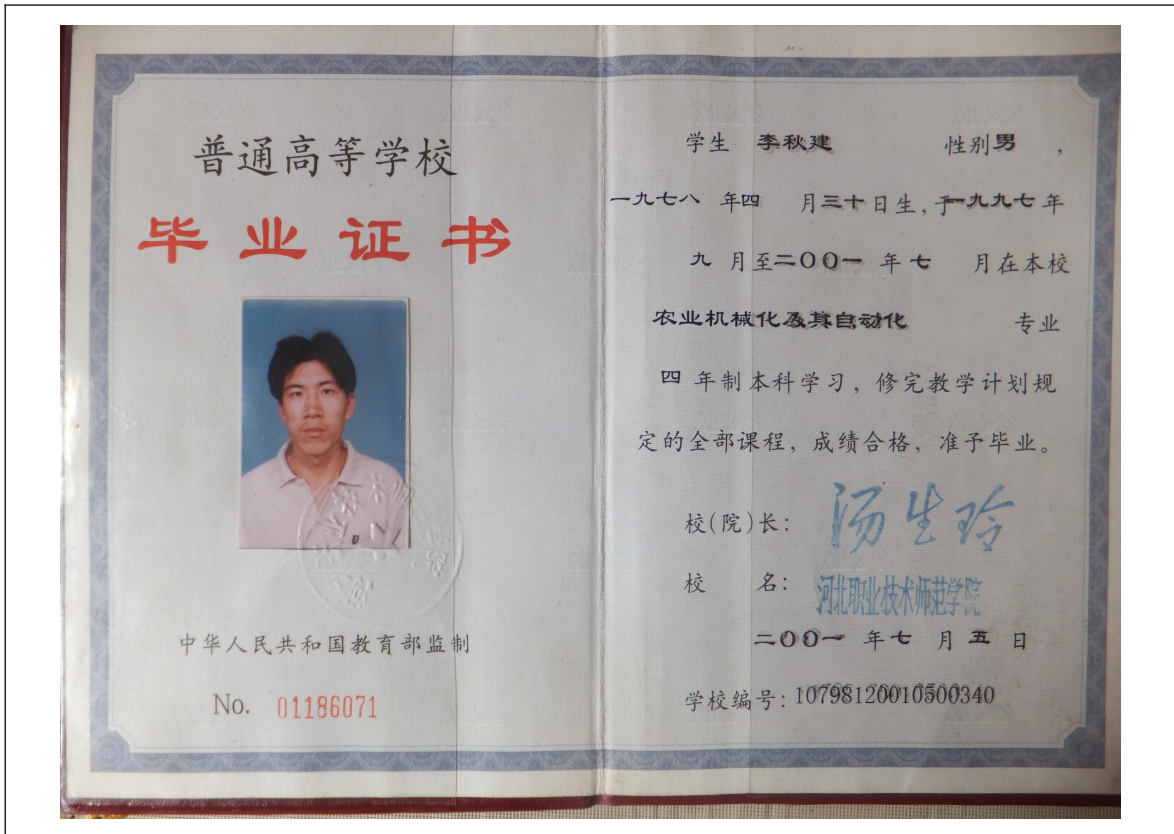 普通高等学校
毕业证书
中华人民共和国教育部监制
No. 01186071
学生 李秋建 性别男 ，
一九七八 年四 月三十日生，于一九九七年
九 月至二〇〇一 年七 月在本校
农业机械化及其自动化 专业
四 年制本科学习，修完教学计划规
定的全部课程，成绩合格，准予毕业。
校(院)长： 汤生玲
校 名： 河北职业技术师范学院
二〇〇一 年七 月 五 日
学校编号：10798120010500340